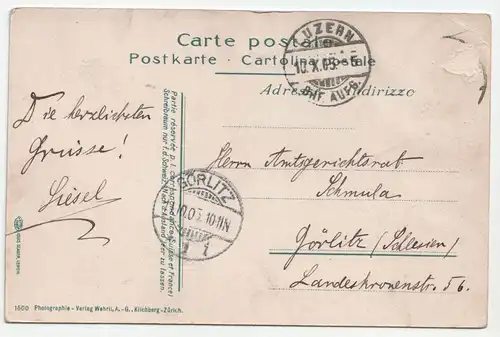 Carte postale
Postkarte - Cartolina postale
Adresse - Indirizzo
LUZERN
10.X.05.-5
BHF. AUFG.
Die herzlichsten
Grüsse!
Liesel
Partie réservée p. l. correspondance (Suisse et France)
Schreibraum nur f. d. Schweiz (Nach d. Ausland leer zu lassen.
GÖRLITZ
10.05.10-11N
1 1
Herrn Amtsgerichtsrat
Schmula
Görlitz (Schlesien)
Landeskronenstr. 56.
1600 Photographie - Verlag Wehrli, A.-G., Kilchberg-Zürich.